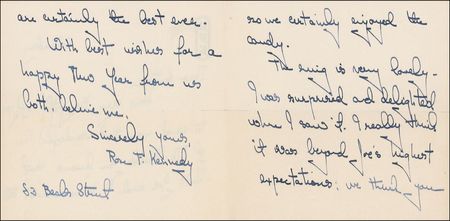 are certainly the best ever.
With best wishes for a
happy New Year from us
both, believe me,
Sincerely yours,
Rose F. Kennedy
83 Beals Street
so we certainly enjoyed the
candy.
The ring is very lovely.
I was surprised and delighted
when I saw it. I really think
it was beyond Joe's highest
expectations; we thank you